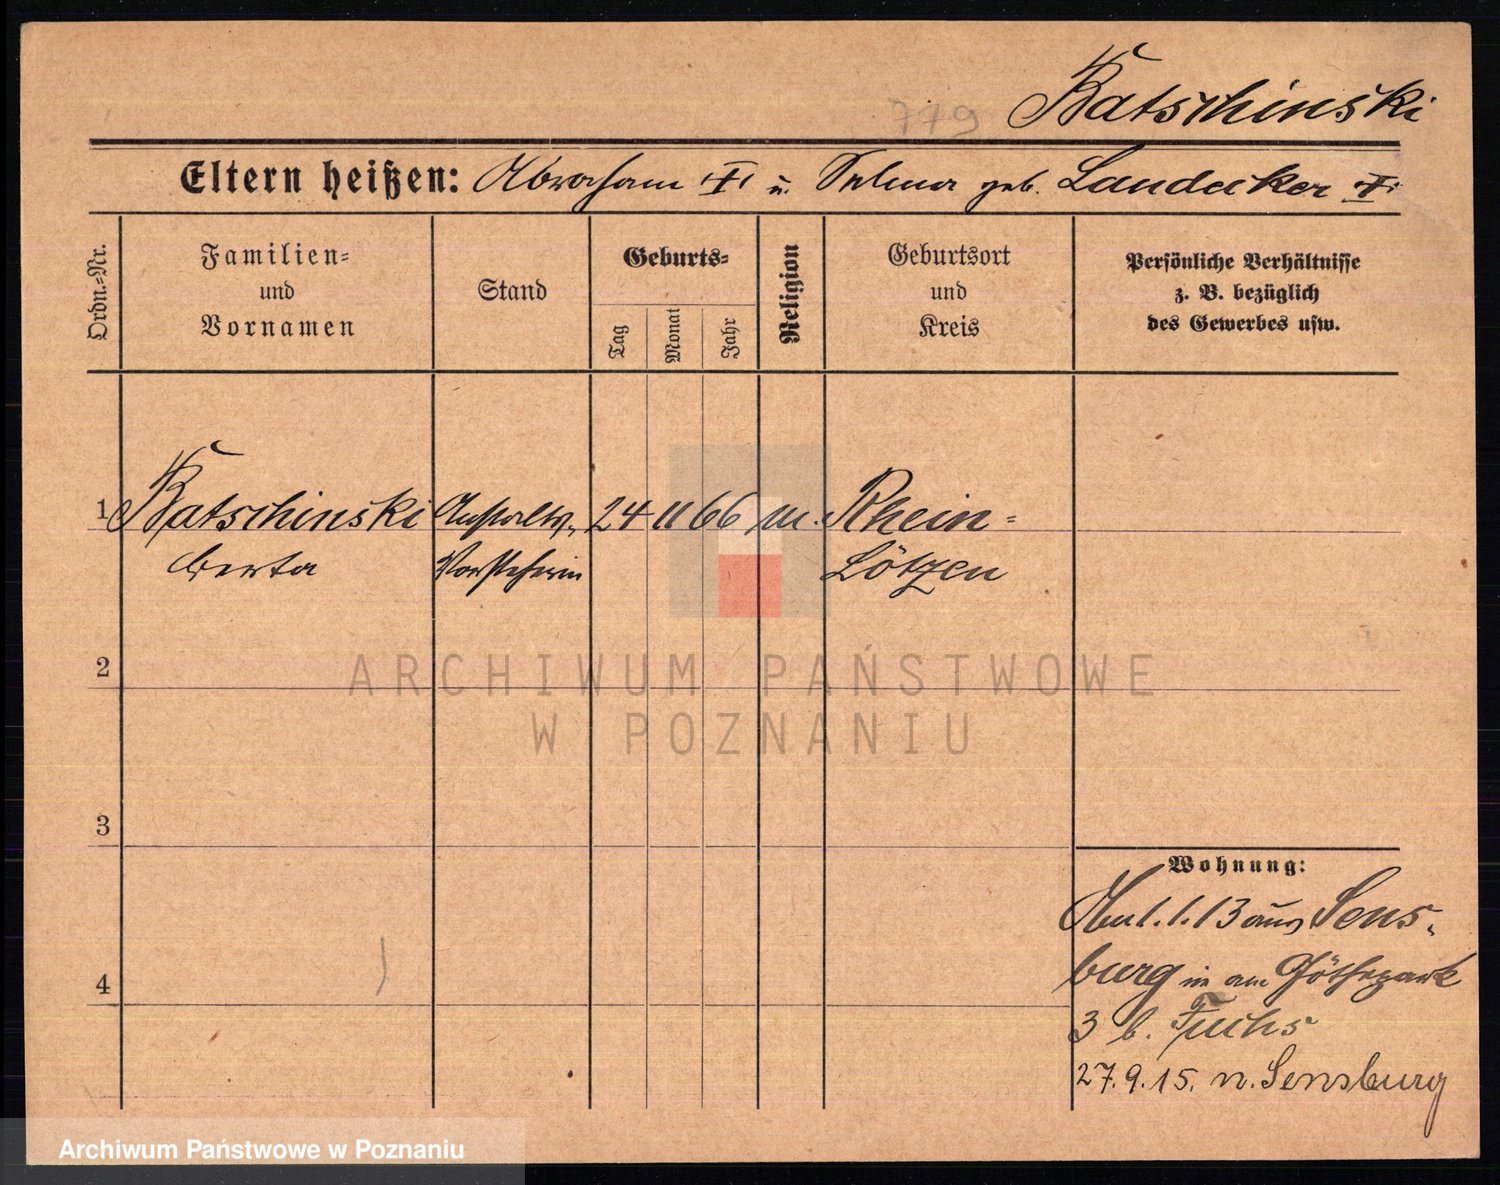 Katschinski
779
Eltern heißen: Abraham † u. Selma geb. Landecker †
Ordn.-Nr.
Familien-
und
Vornamen
Stand
Geburts-
Tag
Monat
Jahr
Religion
Geburtsort
und
Kreis
Persönliche Verhältnisse
z. B. bezüglich
des Gewerbes usw.
1 Katschinski Anstalts- 24 11 66 m. Rhein-
Berta Vorsteherin Lötzen
2
3
4
Wohnung:
1.1.13 aus Sens-
burg in am Göthepark
3 b. Fuchs
27.9.15. n. Sensburg
ARCHIWUM PAŃSTWOWE
W POZNANIU
Archiwum Państwowe w Poznaniu